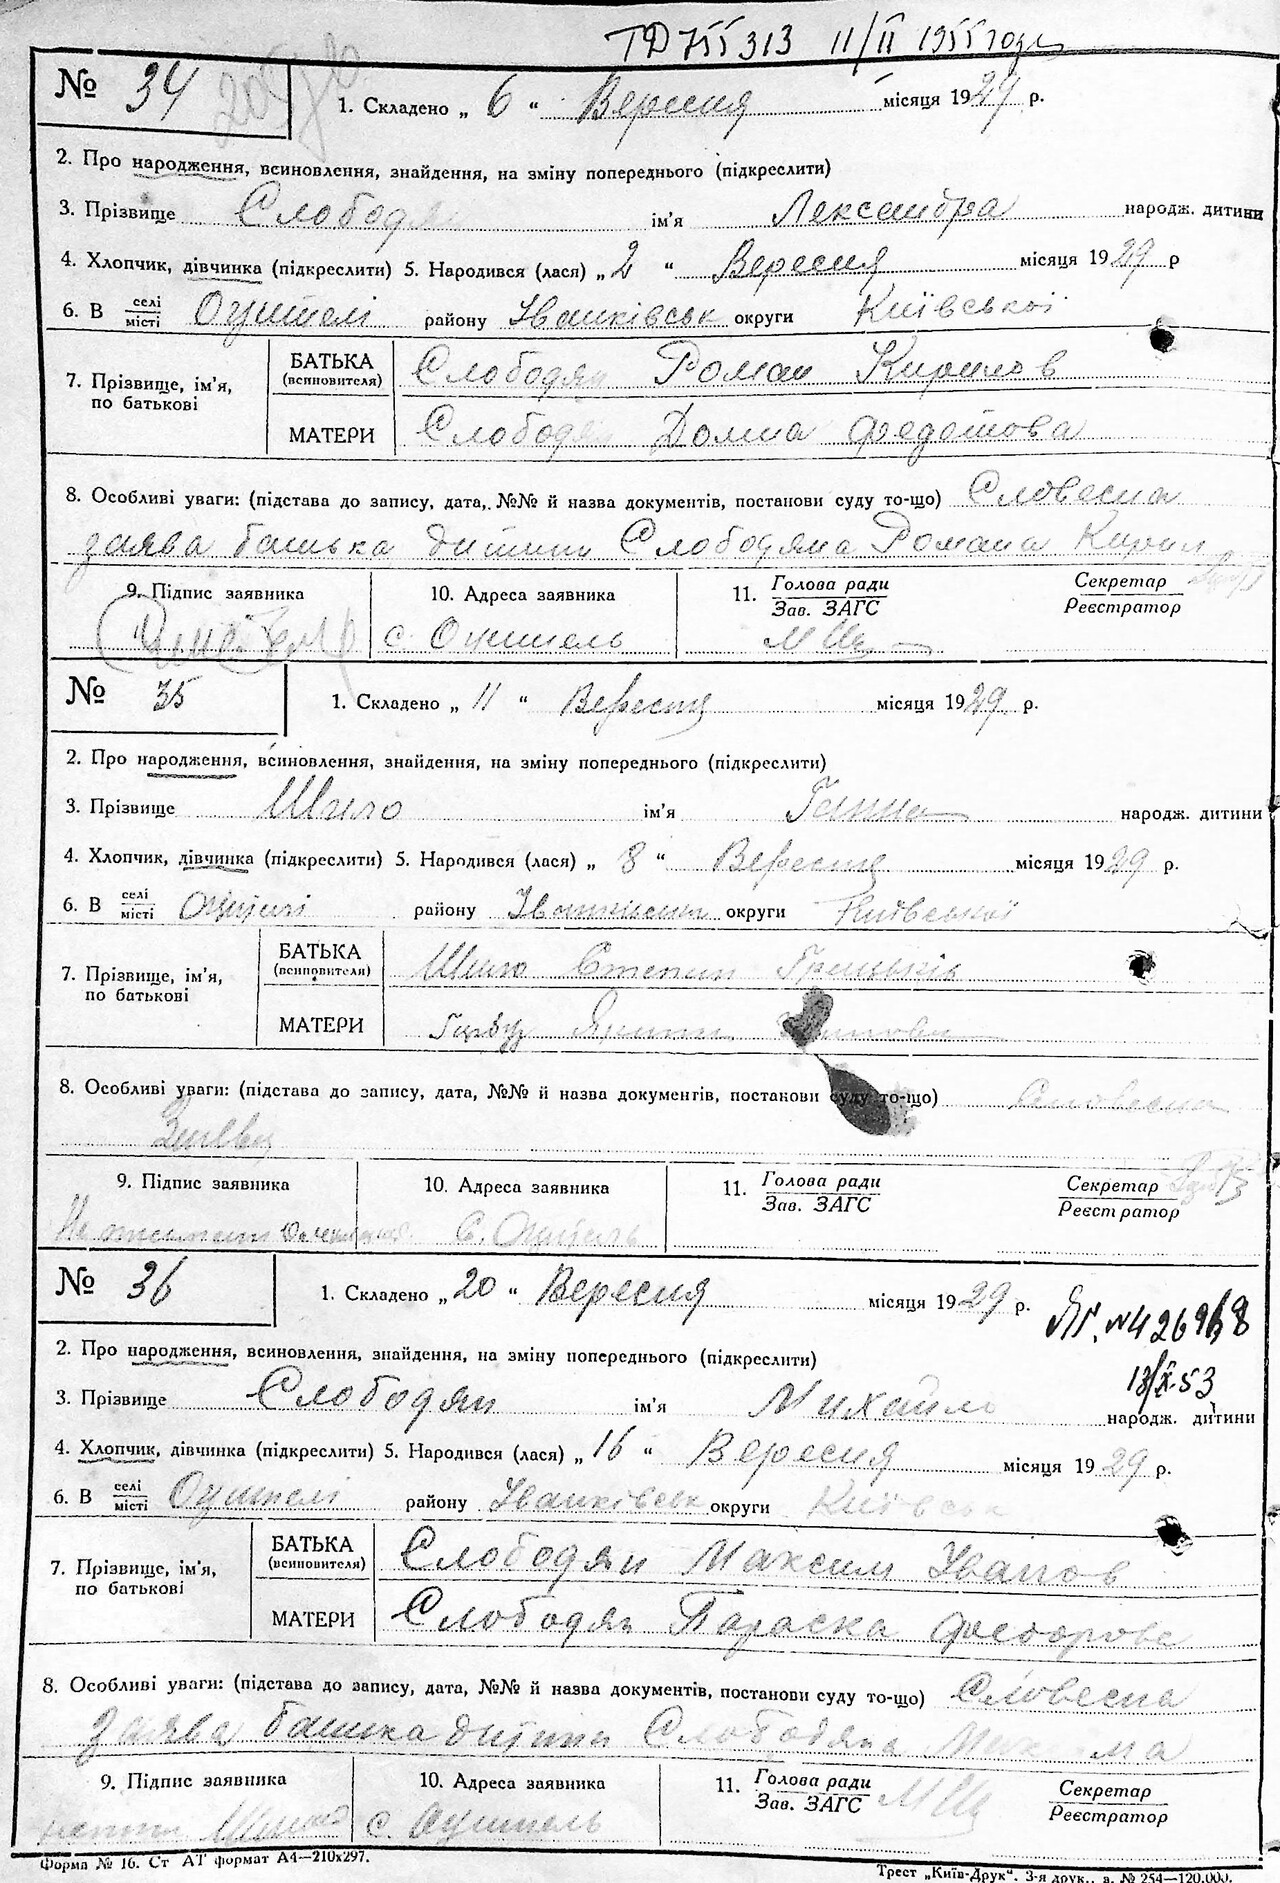 ТД 755313 11/II 1955 года
№ 34
1. Складено „ 6 “ Вересня місяця 1929 р.
2. Про народження, всиновлення, знайдення, на зміну попереднього (підкреслити)
3. Прізвище Слободя ім'я Лександра народж. дитини
4. Хлопчик, дівчинка (підкреслити) 5. Народився (лася) „ 2 “ Вересня місяця 1929 р
6. В селі/місті Оцителі району Іванківськ округи Київської
7. Прізвище, ім'я, по батькові
БАТЬКА (всиновителя) Слободян Роман Кирилов
МАТЕРИ Слободя Домна Федотова
8. Особливі уваги: (підстава до запису, дата, №№ й назва документів, постанови суду то-що) Словесна
заява батька дитини Слободяна Романа Кирил
9. Підпис заявника 10. Адреса заявника 11. Голова ради/Зав. ЗАГС Секретар/Реєстратор
с. Оцитель
№ 35
1. Складено „ 11 “ Вересня місяця 1929 р.
2. Про народження, всиновлення, знайдення, на зміну попереднього (підкреслити)
3. Прізвище Шило ім'я Ганна народж. дитини
4. Хлопчик, дівчинка (підкреслити) 5. Народився (лася) „ 8 “ Вересня місяця 1929 р.
6. В селі/місті Оцителі району Іванківськ округи Київської
7. Прізвище, ім'я, по батькові
БАТЬКА (всиновителя) Шило Степан Грицьків
МАТЕРИ
8. Особливі уваги: (підстава до запису, дата, №№ й назва документів, постанови суду то-що) Словесна
Заява
9. Підпис заявника 10. Адреса заявника 11. Голова ради/Зав. ЗАГС Секретар/Реєстратор
с. Оцитель
№ 36
1. Складено „ 20 “ Вересня місяця 1929 р.
ЯГ. №426968
13/X-53
2. Про народження, всиновлення, знайдення, на зміну попереднього (підкреслити)
3. Прізвище Слободян ім'я Михайло народж. дитини
4. Хлопчик, дівчинка (підкреслити) 5. Народився (лася) „ 16 “ Вересня місяця 1929 р.
6. В селі/місті Оцителі району Іванківськ округи Київськ
7. Прізвище, ім'я, по батькові
БАТЬКА (всиновителя) Слободян Максим Іванов
МАТЕРИ Слободян Параска Федорова
8. Особливі уваги: (підстава до запису, дата, №№ й назва документів, постанови суду то-що) Словесна
заява батька дитини Слободяна
9. Підпис заявника 10. Адреса заявника 11. Голова ради/Зав. ЗАГС Секретар/Реєстратор
с. Оцитель
Форма № 16. Ст АТ формат А4—210х297.
Трест „Київ-Друк“. 3-я друк., з. № 254—120.000.